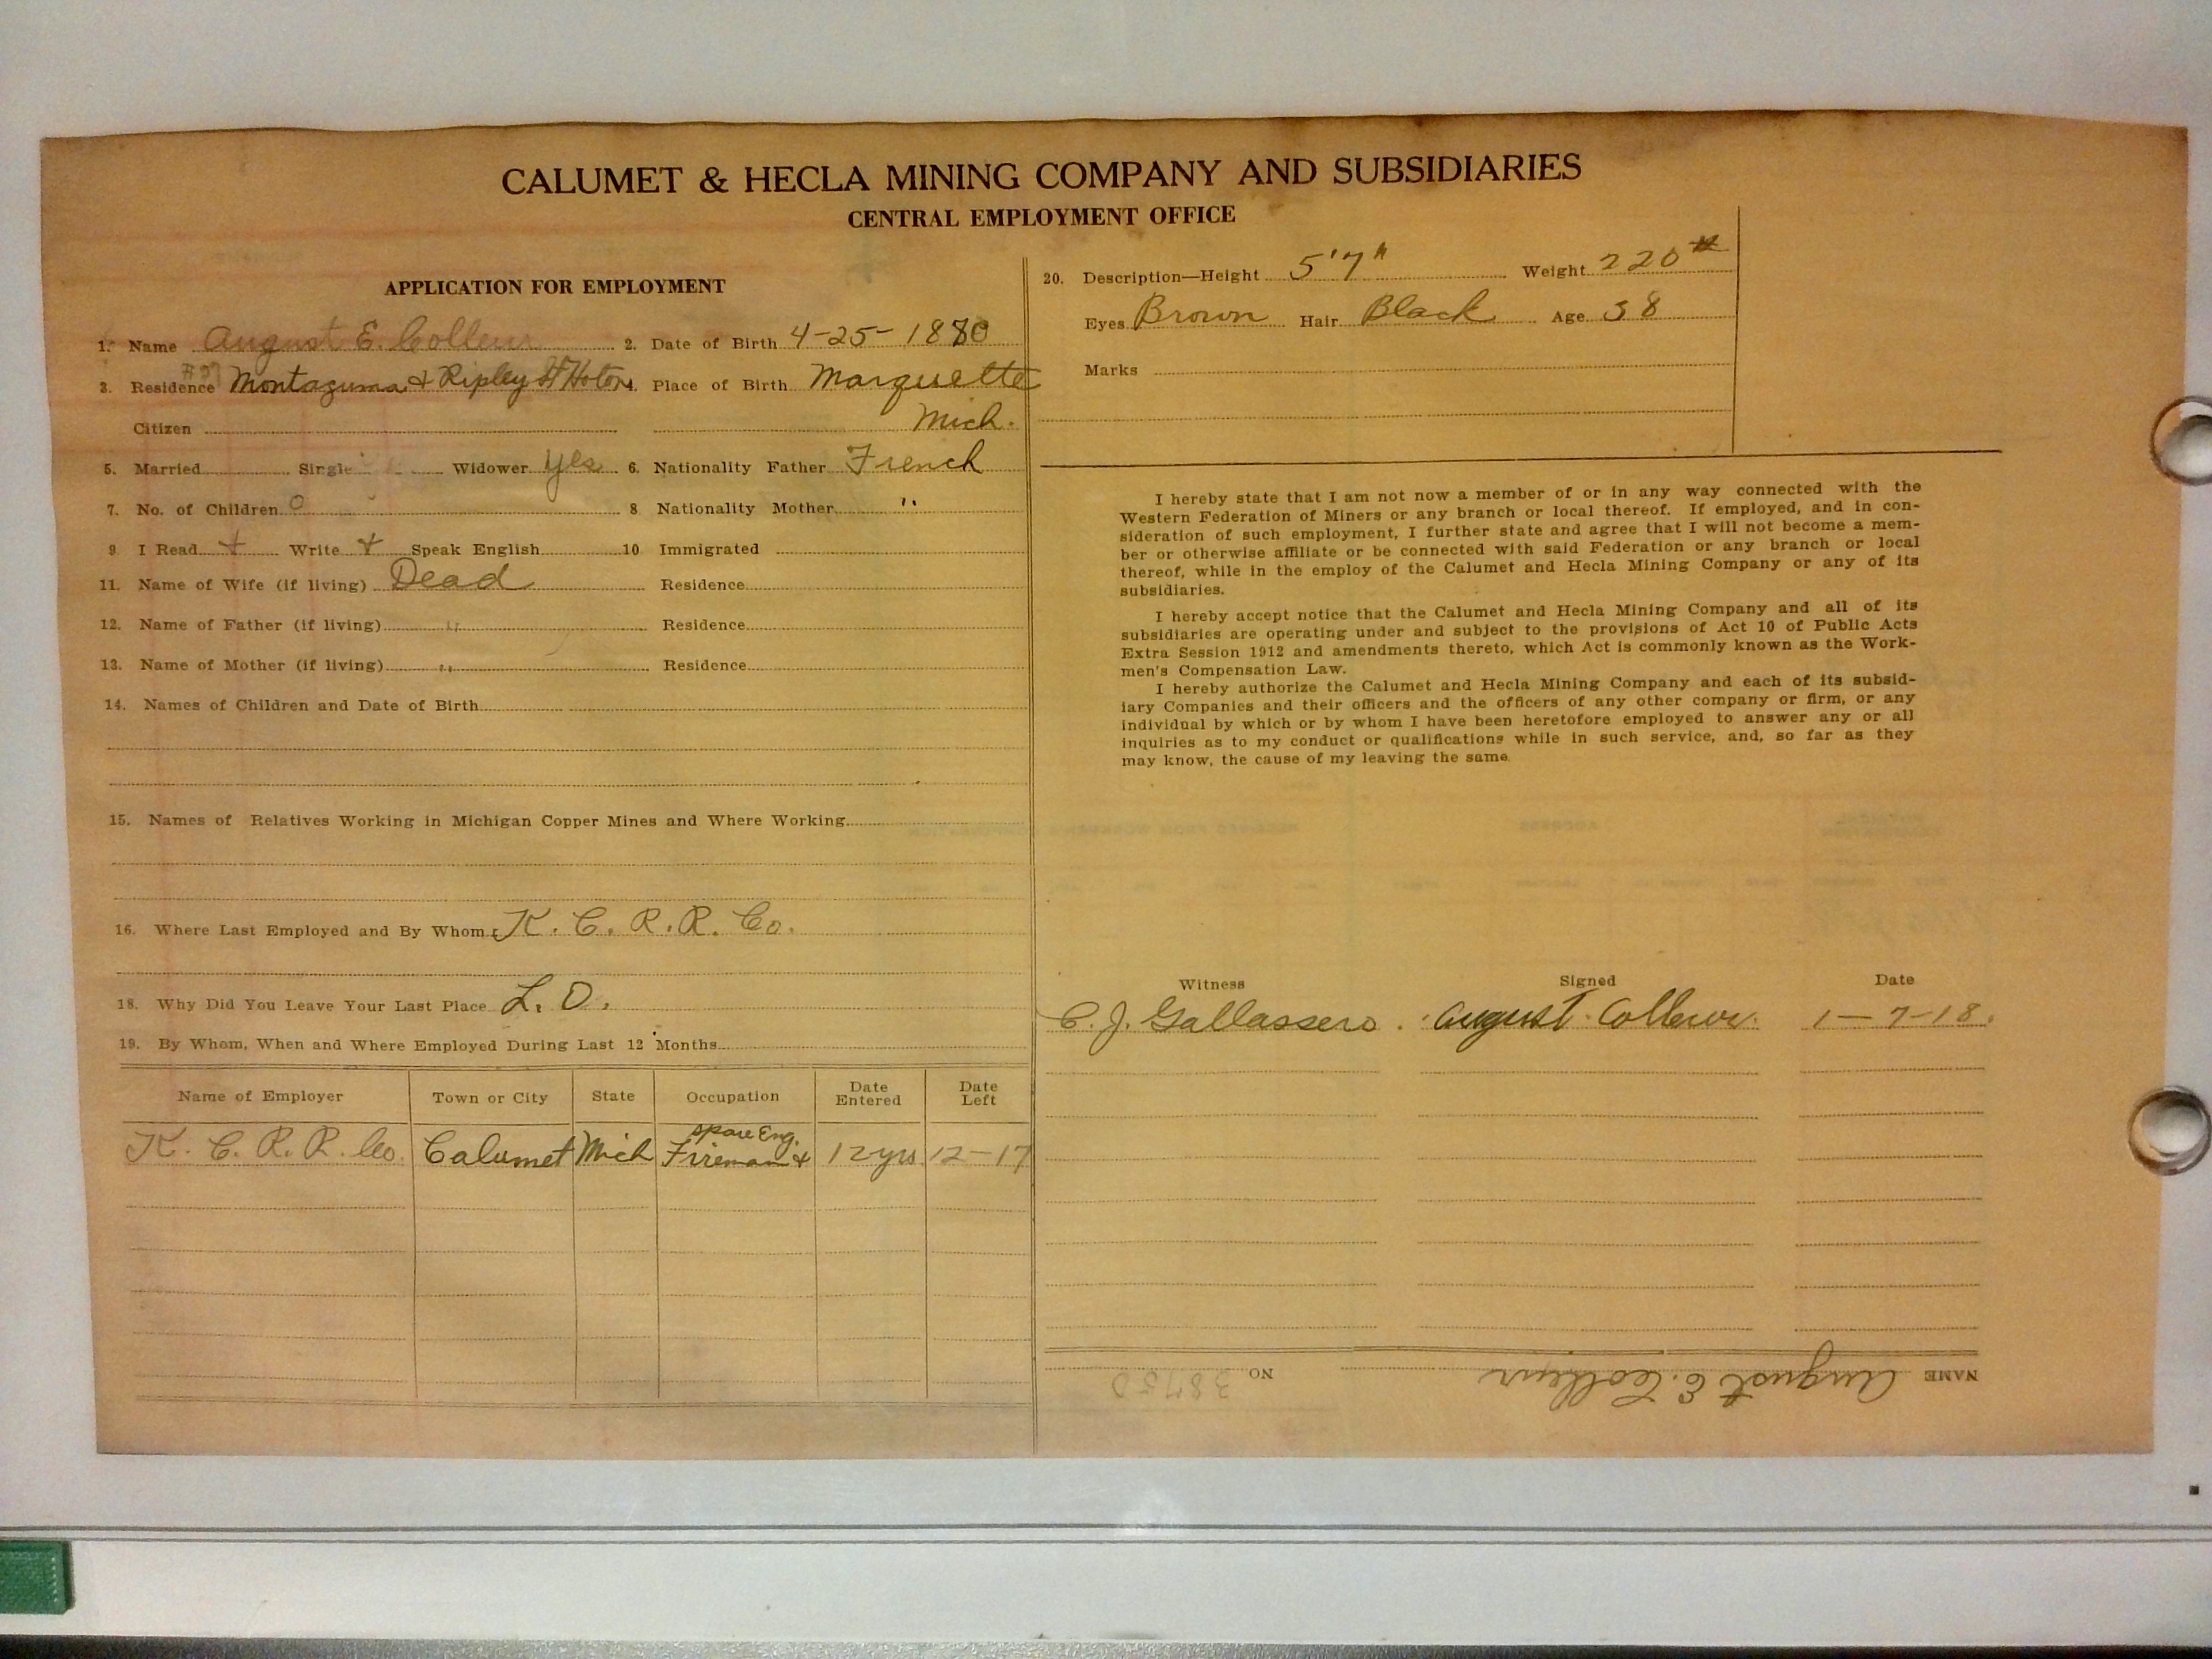 CALUMET & HECLA MINING COMPANY AND SUBSIDIARIES
CENTRAL EMPLOYMENT OFFICE
APPLICATION FOR EMPLOYMENT
1. Name August E. Colleur 2. Date of Birth 4-25-1880
3. Residence Montazuma & Ripley St Hoton 4. Place of Birth Marquette
Citizen Mich.
5. Married Single Widower yes 6. Nationality Father French
7. No. of Children 0 8 Nationality Mother "
9 I Read + Write + Speak English 10 Immigrated
11. Name of Wife (if living) Dead Residence
12. Name of Father (if living) " Residence
13. Name of Mother (if living) " Residence
14. Names of Children and Date of Birth
15. Names of Relatives Working in Michigan Copper Mines and Where Working
16. Where Last Employed and By Whom K. C. R. R. Co.
18. Why Did You Leave Your Last Place L. O.
19. By Whom, When and Where Employed During Last 12 Months
Name of Employer Town or City State Occupation Date Entered Date Left
spare Eng.
K. C. R. R. Co. Calumet Mich Fireman & 12 yrs 12-17
20. Description—Height 5'7" Weight 220 #
Eyes Brown Hair Black Age 38
Marks
I hereby state that I am not now a member of or in any way connected with the
Western Federation of Miners or any branch or local thereof. If employed, and in con-
sideration of such employment, I further state and agree that I will not become a mem-
ber or otherwise affiliate or be connected with said Federation or any branch or local
thereof, while in the employ of the Calumet and Hecla Mining Company or any of its
subsidiaries.
I hereby accept notice that the Calumet and Hecla Mining Company and all of its
subsidiaries are operating under and subject to the provisions of Act 10 of Public Acts
Extra Session 1912 and amendments thereto, which Act is commonly known as the Work-
men's Compensation Law.
I hereby authorize the Calumet and Hecla Mining Company and each of its subsid-
iary Companies and their officers and the officers of any other company or firm, or any
individual by which or by whom I have been heretofore employed to answer any or all
inquiries as to my conduct or qualifications while in such service, and, so far as they
may know, the cause of my leaving the same.
Witness Signed Date
C. J. Gallassero. August Colleur. 1-7-18.
NAME August E. Colleur NO 38750